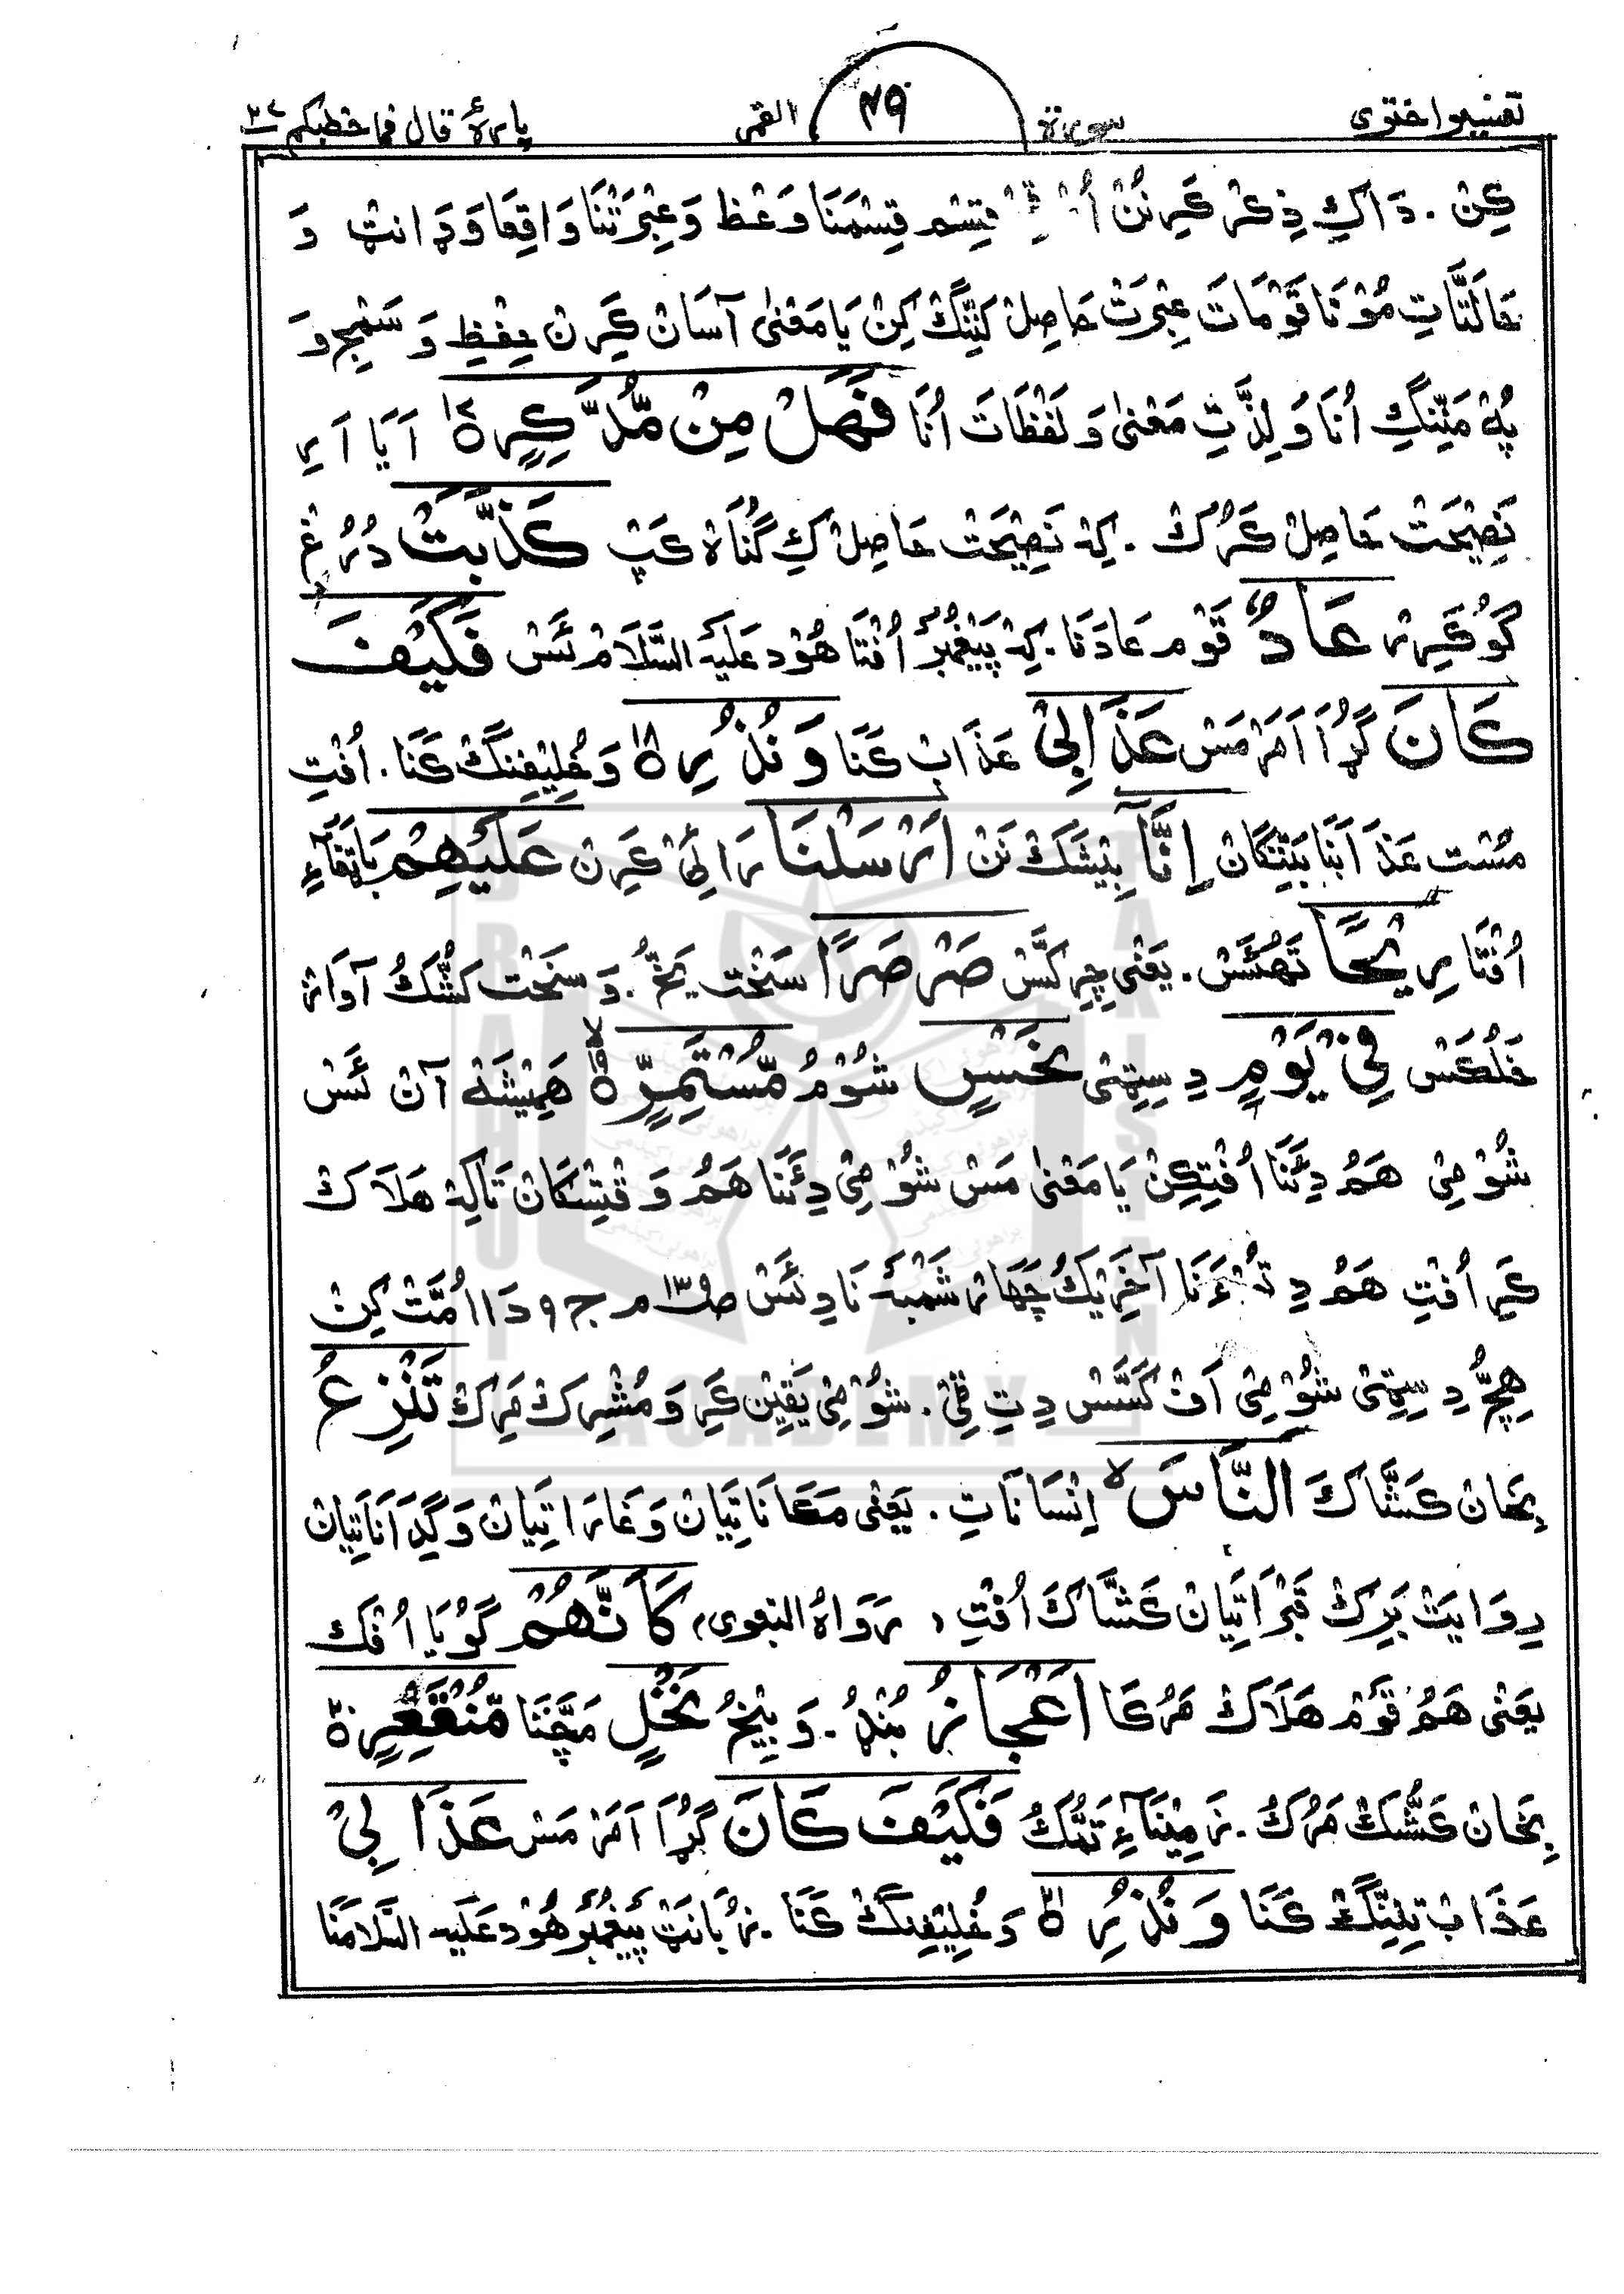 تفسیر اختری سورة ۴۹ القمر پارۀ قال فما خطبکم ۲۷
کِنْ . دَاکِ ذِکْرْ کَرِنُنْ قِسْم قِسْمَنَا وَعْظ وَعِبْرَتْنَا وَاقِعَا وَڈانٹ وَ
حَالَتَّاتِ مُؤنَا قَوْمَاتَ عِبْرَتْ حَاصِلْ کَنِّنْگ کِنْ یَا مَعْنٰی آسَانْ کَرِنْ حِفْظِ وَ سَمْجِ وَ
پُهْ مَنِّنْگِ اُنَا وَ لِذَّتِ مَعْنٰی وَ لَفْظَاتَ اُنَا فَهَلْ مِنْ مُّدَّكِرٍ ۝۱۷ اَیَا اَرِ
نَصِیْحَتْ حَاصِلْ کَرُکْ . کِهْ نَصِیْحَتْ حَاصِلْ کِ گُنَاهْ کَپْ كَذَّبَتْ دُرُغْ
گَوُ کَرِرْ عَادٌ قَوْم عَادَنَا . کِهْ پَیْغَمْبَرْ اُفْتَا هُوْد عَلَیْهِ السَّلَامْ ئَسْ فَكَيْفَ
كَانَ گُڑَا اَمَرْ مَسْ عَذَابِیْ عَذَابْ کَنَا وَنُذُرِ ۝۱۸ وَ خُلِیْفِنْگْ کَنَا . اُفْتِ
مُسْت عَذَابَنَا بَنِّنْگَانْ إِنَّا بِیْشَكْ نَنْ اَرْسَلْنَا رَاهِیْ کَرِنْ عَلَيْهِمْ بَاتَغَاءِ
اُفْتَا رِيْحًا تَهُسَّسْ . یَعْنِی چِرِکَسْ صَرْصَرًا سَخْت یَخُّ . وَ سَخْت کَشُّكْ آوَازْ
خَلُکَسْ فِیْ يَوْمٍ دِسِیٹِی نَحْسٍ شُوْمُ مُّسْتَمِرٍّ ۝۱۹ هَمِیْشَهْ آنْ ئَسْ
شُوْمِی هَمُ دِئَنَا اُفْتِکِنْ یَا مَعْنٰی مَسْ شُوْمِی دِئَنَا هَمُ وَقْتِسْکَانْ تَاکِهْ هَلَاكْ
کَرِ اُفْتِ هَمُ دِ آخِرِیْكُ چَهَارْ شَمْبَهَ نَادِ ئَسْ ص۱۳۰ م ج ۹ وَ دَا اُمَّتْ کِنْ
هِچُّ دِسِیٹِی شُوْمِی اَفْ کَسَّسْ دِتِ فِیْ . شُوْمِی یَقِیْن کَرِ وَ مُشْرِكْ مَرِكْ تَنْزِعُ
بِخَانْ کَشَّاکَ النَّاسَ ۙ اِنْسَانَاتِ . یَعْنِی مَکَانَاتِیَانْ وَ غَارَاتِیَانْ وَ گِدَانَاتِیَانْ
رِوَایَتْ بَرِكْ قَبْرَاتِیَانْ کَشَّاکَ اُفْتِ ، رَوَاهُ البغوی، كَأَنَّهُمْ گَوْیَا اُفْكْ
یَعْنِی هَمُ قَوْمْ هَلَاكْ مَرُکَا اَعْجَازُ بُنْڈُ . وَ بِیْخُ نَخْلٍ مَچَّنَا مُّنْقَعِرٍ ۝۲۰
بِخَانْ کَشُّكْ مَرُكُ . زَمِیْنَاءِ تَمُّكْ فَكَيْفَ كَانَ گُڑَا اَمَرْ مَسْ عَذَابِیْ
عَذَابْ تِنِنْگْ کَنَا وَنُذُرِ ۝۲۱ وَ خُلِیْفِنْگْ کَنَا . زُبَانَٹْ پَیْغَمْبَرْ هُوْد عَلَیْهِ السَّلَامْنَا
BRAHUI ACADEMY PAKISTAN